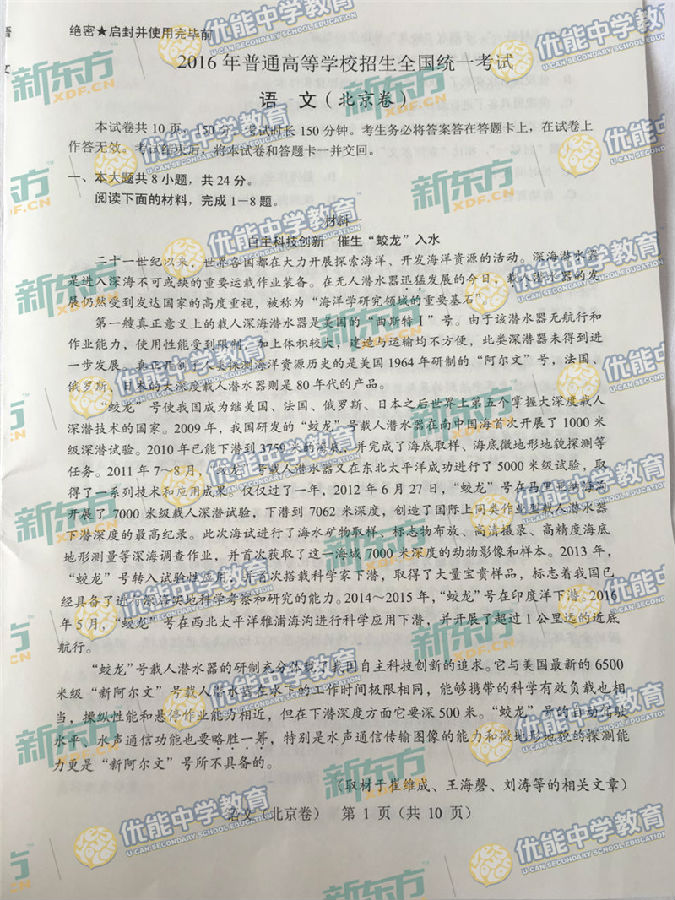 绝密★启封并使用完毕前
2016年普通高等学校招生全国统一考试
语 文(北京卷)
本试卷共10页,150分。考试时长150分钟。考生务必将答案答在答题卡上,在试卷上
作答无效。考试结束后,将本试卷和答题卡一并交回。
一、本大题共8小题,共24分。
阅读下面的材料,完成1-8题。
材料一
自主科技创新 催生“蛟龙”入水
二十一世纪以来,世界各国都在大力开展探索海洋、开发海洋资源的活动。深海潜水器
是进入深海不可或缺的重要运载作业装备。在无人潜水器迅猛发展的今日,载人潜水器的发
展仍然受到发达国家的高度重视,被称为“海洋学研究领域的重要基石”。
第一艘真正意义上的载人深海潜水器是美国的“曲斯特I”号。由于该潜水器无航行和
作业能力,使用性能受到限制,加上体积较大,建造与运输均不方便,此类深潜器未得到进
一步发展。真正开创了人类探测海洋资源历史的是美国1964年研制的“阿尔文”号,法国、
俄罗斯、日本的大深度载人潜水器则是80年代的产品。
“蛟龙”号使我国成为继美国、法国、俄罗斯、日本之后世界上第五个掌握大深度载人
深潜技术的国家。2009年,我国研发的“蛟龙”号载人潜水器在南中国海首次开展了1000米
级深潜试验。2010年已能下潜到3759米的海底,并完成了海底取样、海底微地形地貌探测等
任务。2011年7~8月,“蛟龙”号载人潜水器又在东北太平洋成功进行了5000米级试验,取
得了一系列技术和应用成果。仅仅过了一年,2012年6月27日,“蛟龙”号在马里亚纳海沟
开展了7000米级载人深潜试验,下潜到7062米深度,创造了国际上同类作业型载人潜水器
下潜深度的最高纪录。此次海试进行了海水矿物取样、标志物布放、高清摄录、高精度海底
地形测量等深海调查作业,并首次获取了这一海域7000米深度的动物影像和样本。2013年,
“蛟龙”号转入试验性应用,并首次搭载科学家下潜,取得了大量宝贵样品,标志着我国已
经具备了进入深海实地科学考察和研究的能力。2014~2015年,“蛟龙”号在印度洋下潜。2016
年5月,“蛟龙”号在西北太平洋雅浦海沟进行科学应用下潜,并开展了超过1公里远的近底
航行。
“蛟龙”号载人潜水器的研制充分体现了我国自主科技创新的追求。它与美国最新的6500
米级“新阿尔文”号载人潜水器在水下的工作时间极限相同,能够携带的科学有效负载也相
当,操纵性能和悬停作业能力相近,但在下潜深度方面它要深500米。“蛟龙”号的自动航行
水平、水声通信功能也要略胜一筹,特别是水声通信传输图像的能力和微地形地貌的探测能
力更是“新阿尔文”号所不具备的。
(取材于崔维成、王海罄、刘涛等的相关文章)
语文(北京卷) 第1页(共10页)
新东方
XDF.CN
优能中学教育
U CAN SECONDARY SCHOOL EDUCATION